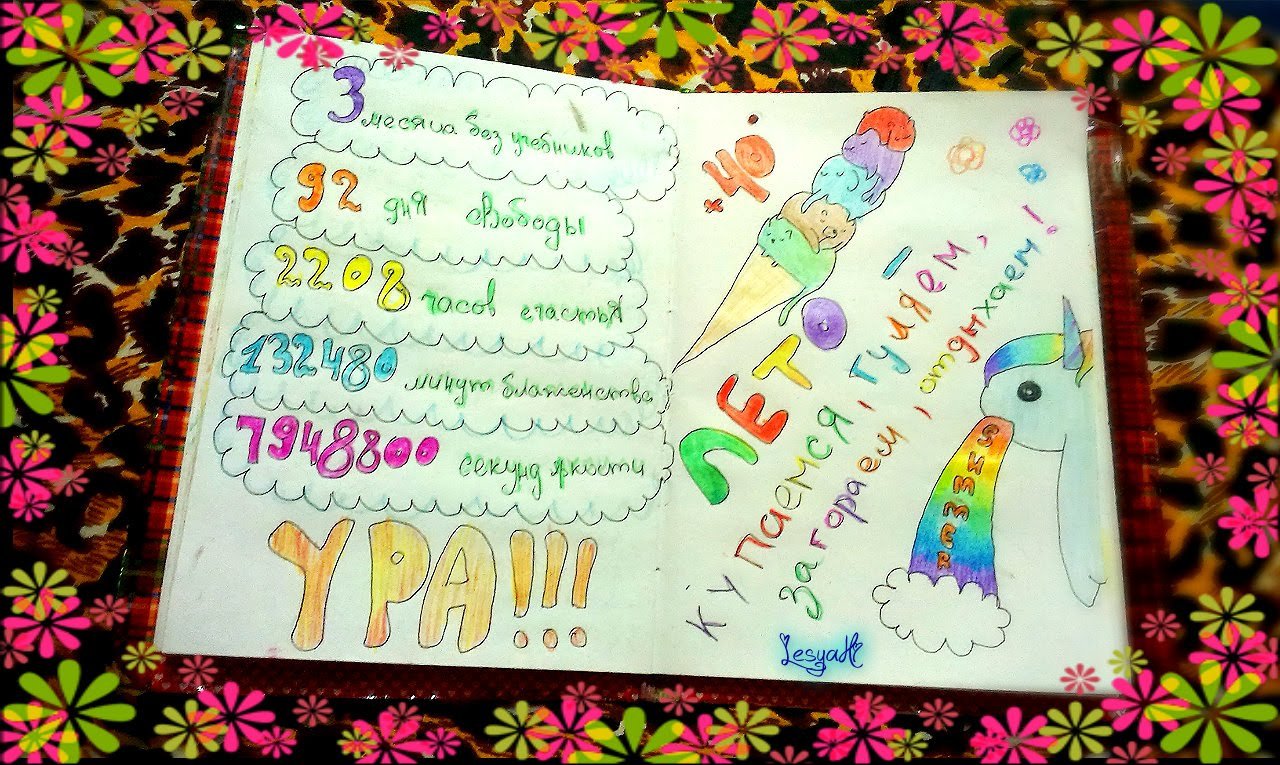 3 месяца без учебников
92 дня свободы
2208 часов счастья
132480 минут блаженства
7948800 секунд яркости
УРА!!!
+40°
ЛЕТО –
купаемся, гуляем,
загораем, отдыхаем!
SUMMER
LesyaHi